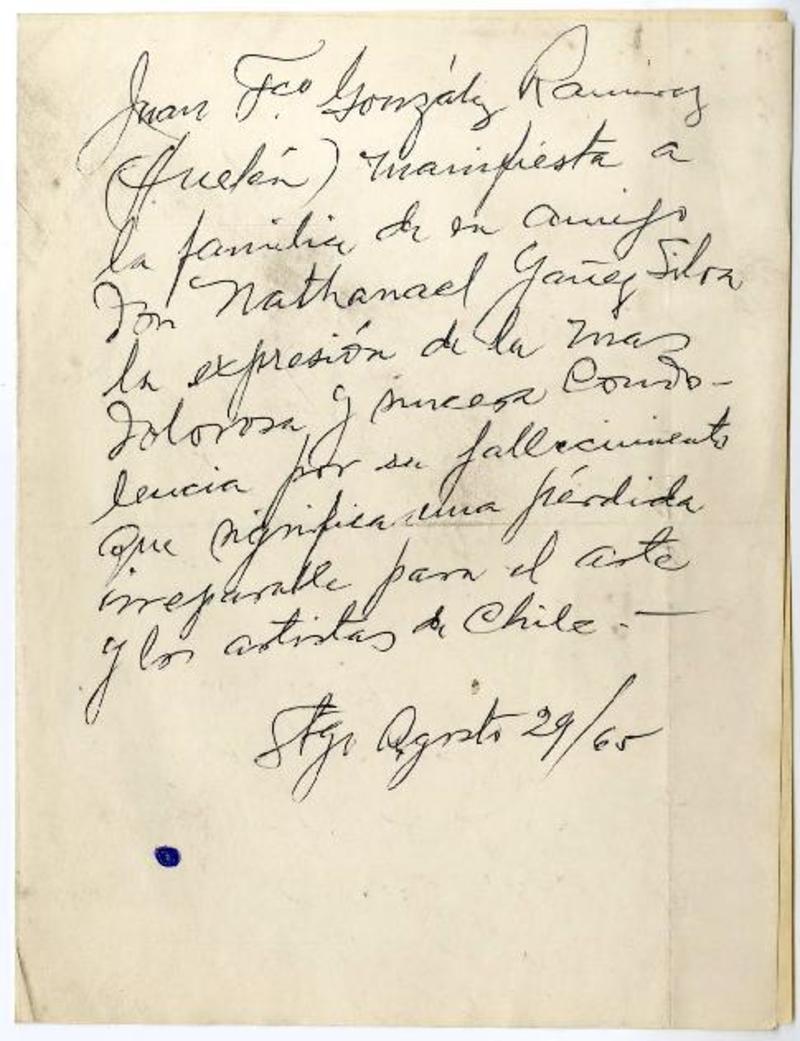 Juan Fco González Ramírez
(Huelén) manifiesta a
la familia de su amigo
don Nathanael Yañez Silva
la expresión de la mas
dolorosa y sincera Condo-
lencia por su fallecimiento
que significa una pérdida
irreparable para el arte
y los artistas de Chile. —
Stgo Agosto 29/65